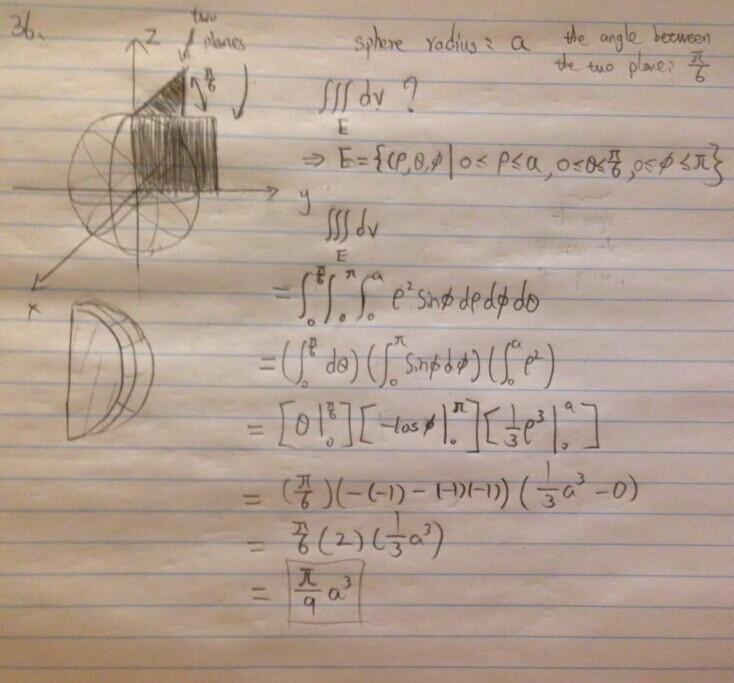 36.
two
planes
z
π/6
y
x
sphere radius: a the angle between
the two plane: π/6
∭_E dv ?
⇒ E = {(ρ,θ,φ | 0 ≤ ρ ≤ a, 0≤θ≤π/6, 0≤φ≤π}
∭_E dv
= ∫_0^{π/6} ∫_0^π ∫_0^a ρ² sinφ dρ dφ dθ
= (∫_0^{π/6} dθ) (∫_0^π sinφ dφ) (∫_0^a ρ²)
= [θ|_0^{π/6}] [-cosφ|_0^π] [1/3 ρ³|_0^a]
= (π/6) (-(-1) - (-1)(-1)) (1/3 a³ - 0)
= π/6 (2) (1/3 a³)
= π/9 a³